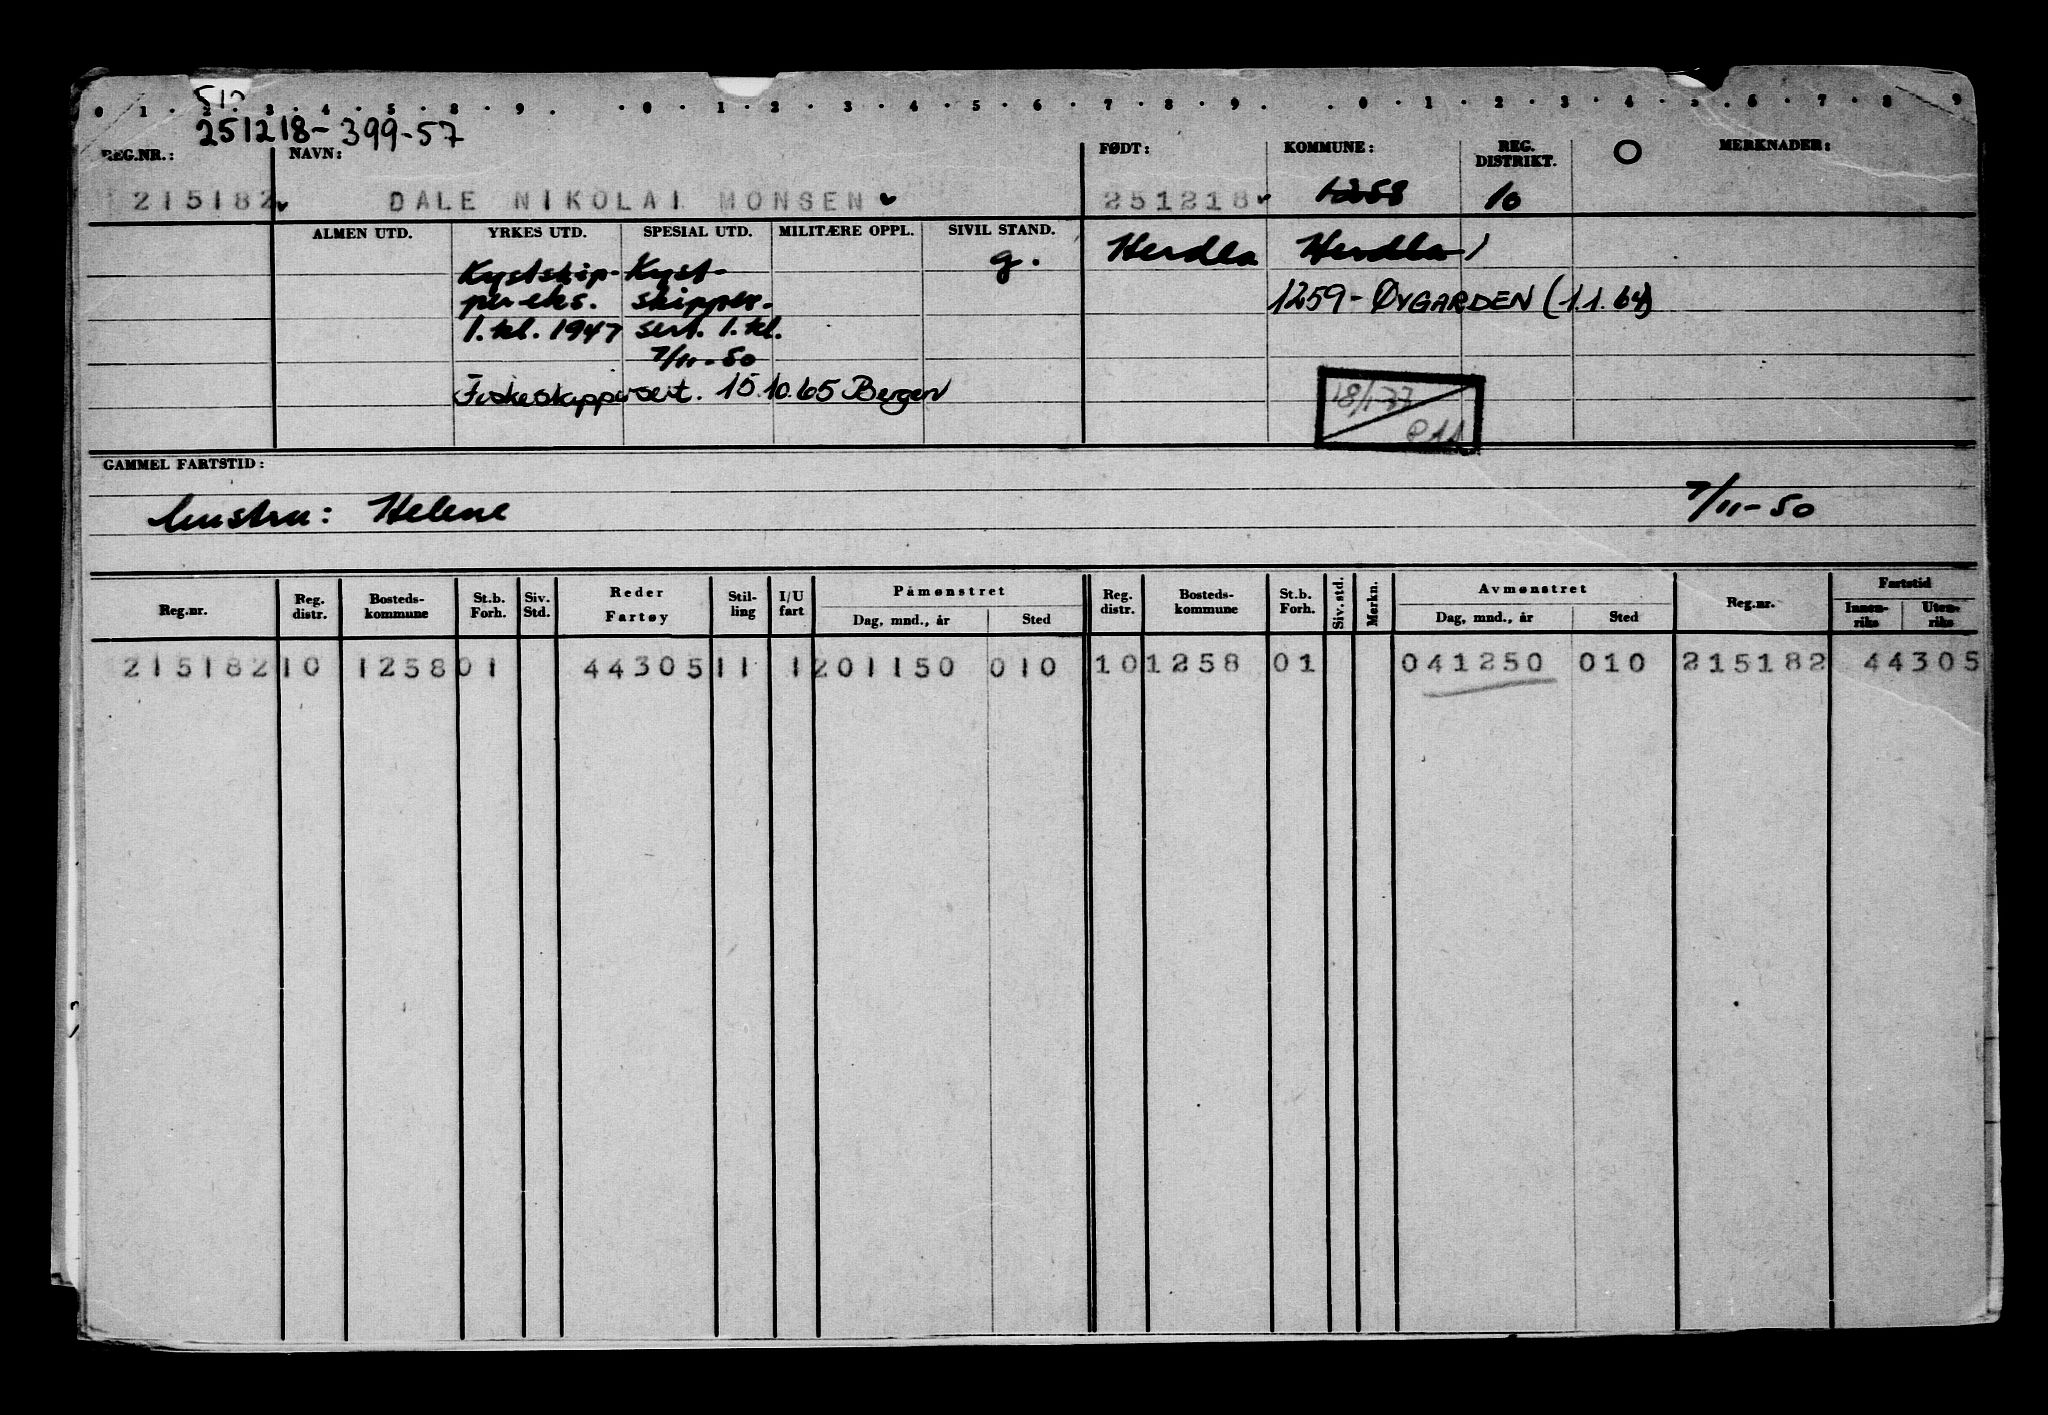 0 1 2 3 4 5 8 9 0 1 2 3 4 5 6 7 8 9 0 1 2 3 4 5 6 7 8 9
251218-399-57
REG.NR.: NAVN: FØDT: KOMMUNE: REG. DISTRIKT. O MERKNADER:
215182 DALE NIKOLAI MONSEN 251218 1258 10
ALMEN UTD. YRKES UTD. SPESIAL UTD. MILITÆRE OPPL. SIVIL STAND. Herdla Herdla
Kystskip- Kyst- g.
per eks. skipper- 1259-ØYGARDEN (1.1.64)
1.kl. 1947 sert. 1.kl.
7/11-50
Fiskeskippersert. 15.10.65 Bergen
18/1-77
GAMMEL FARTSTID:
hustru: Helene 7/11-50
Reg.nr. Reg. distr. Bosteds-kommune St.b. Forh. Siv. Std. Reder Fartøy Stil-ling I/U fart Påmønstret Dag, mnd., år Sted Reg. distr. Bosteds-kommune St.b. Forh. Siv. std. Merkn. Avmønstret Dag, mnd., år Sted Reg.nr. Fartstid Innen-riks Uten-riks
215182 10 1258 01 44305 11 1 201150 010 10 1258 01 041250 010 215182 44305